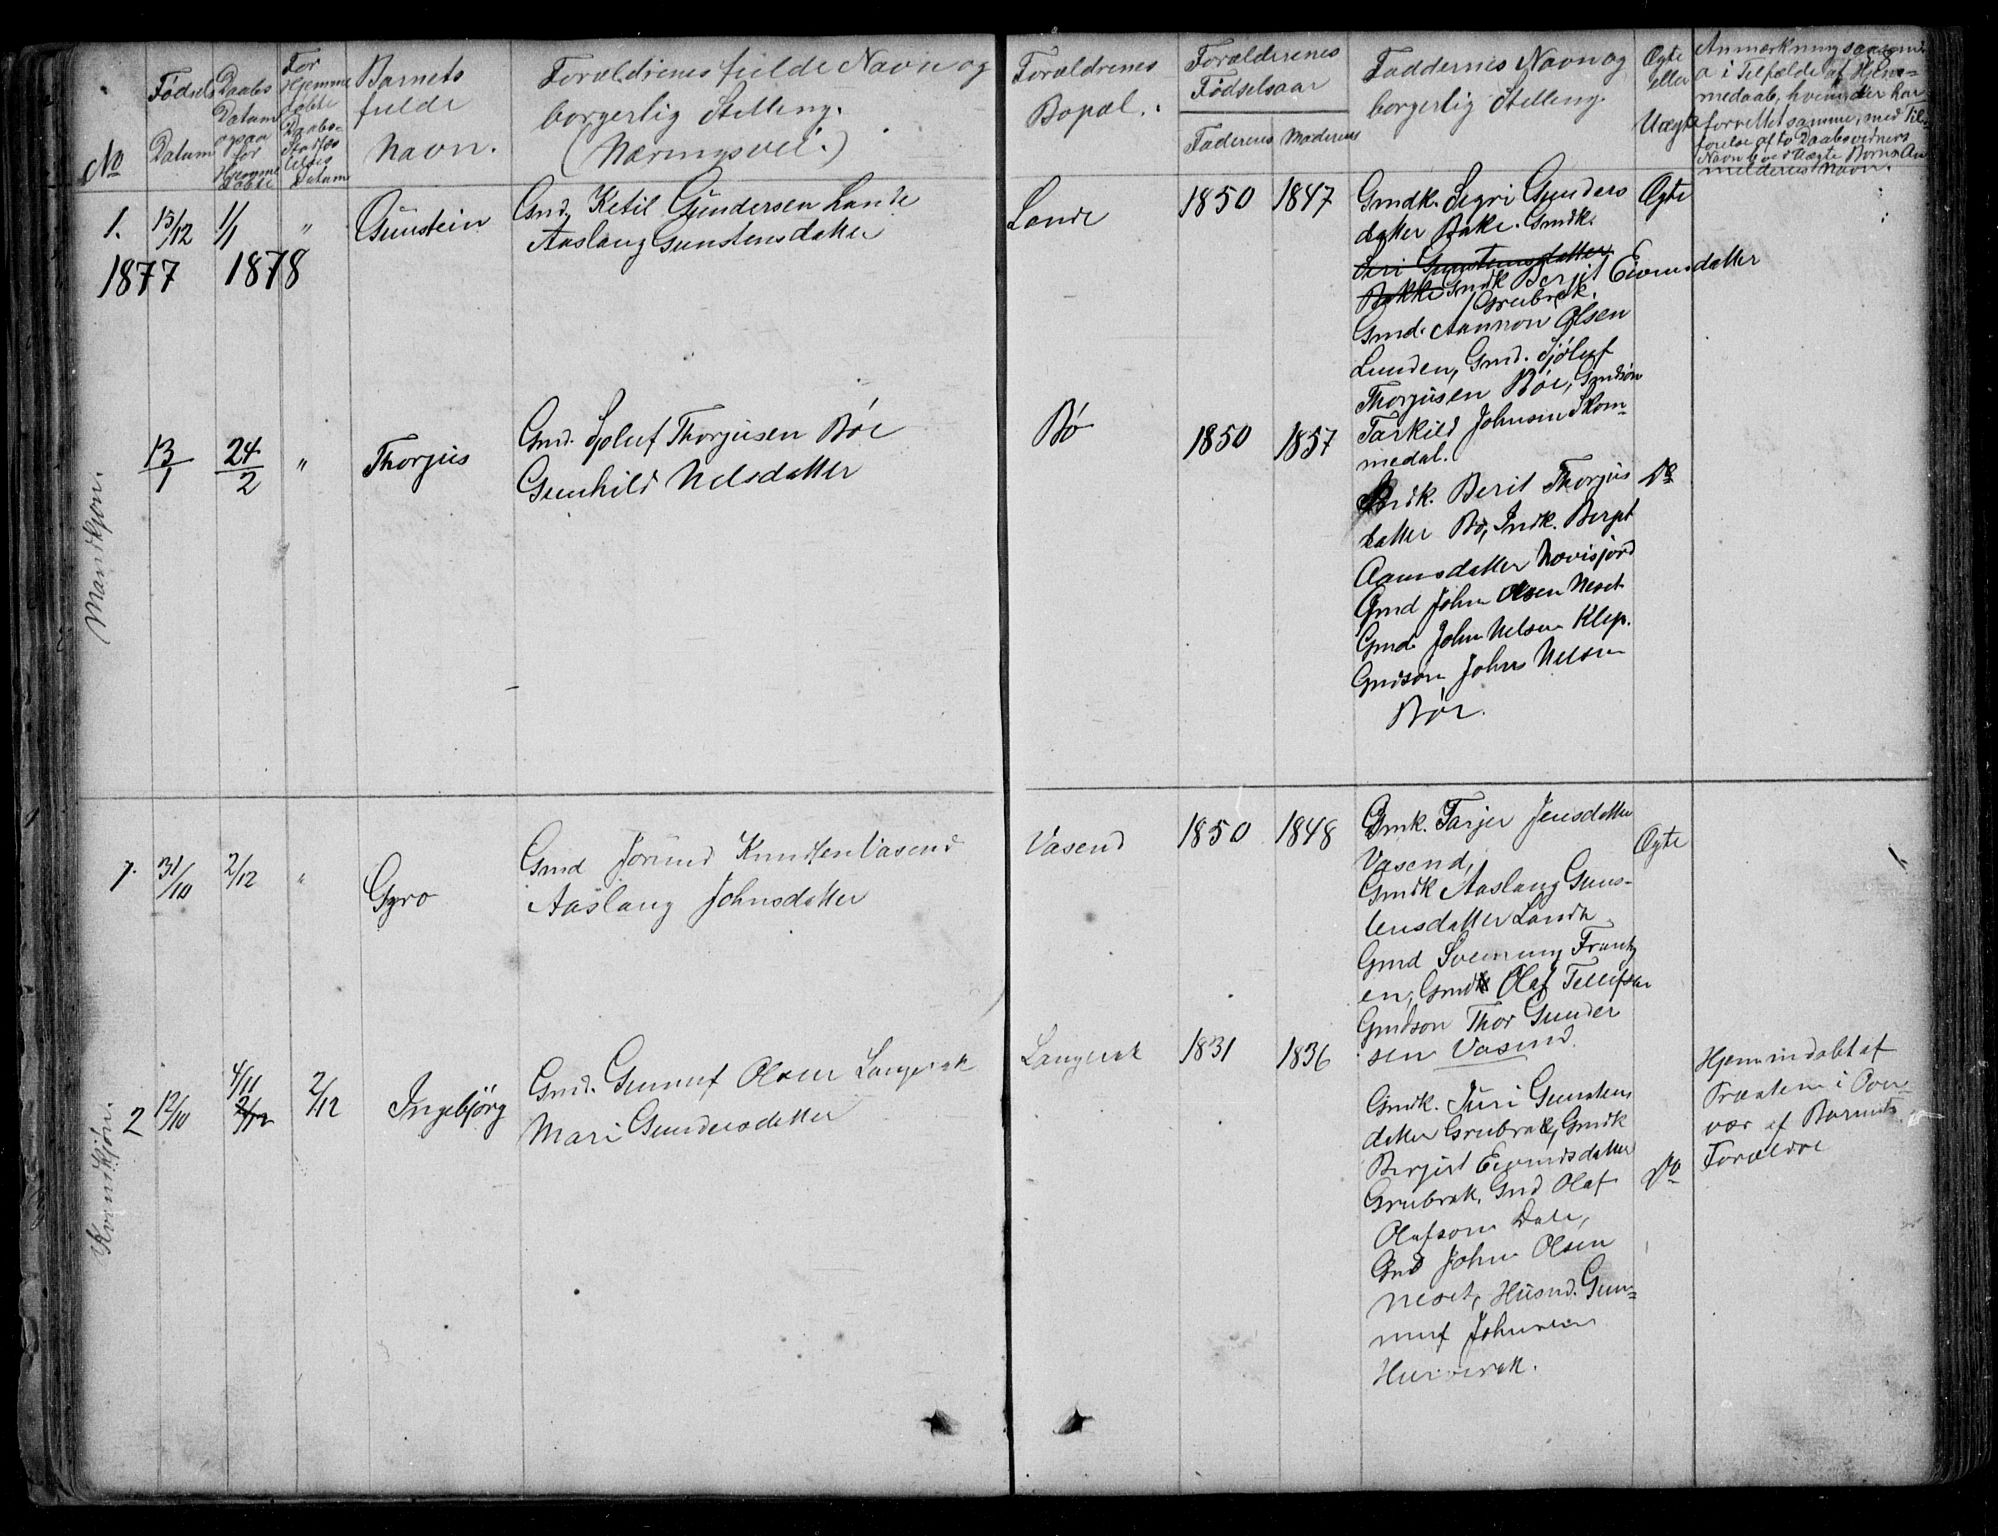 No
Fødsels
Datum
Daabs
Datum
ogsaa
for
Hjemme
døbte
For
Hjemme
døbte
Daabs-
Stadfæs
telses
Datum
Barnets
fulde
Navn.
Forældrenes fulde Navn og
borgerlig Stilling.
(Næringsvei.)
Forældrenes
Bopæl.
Forælderenes
Fødselsaar
Faderens Moderens
Faddernes Navn og
borgerlig Stilling.
Ægte
eller
Uægte
Anmærkning saasom
a i Tilfælde af Hjem-
medaab, hvem der har
forrettet samme, med Til-
førelse af to Daabsvidners
Navn b ved Uægte Børns An
melderens Navn.
Mandkjøn.
1. 13/12 1/1 " Gunstein
1877 1878
Gmd. Ketil Gundersen Lande
Aaslaug Gunstensdatter
Lande 1850 1847
Gmdk. Sigri Gunders
datter Bakke. Gmdk.
Siri Gunstensdatter
Bakke Gmdk Bergit Eivindsdatter
Grubrok.
Gmd. Aannon Olsen
Lunden, Gmd. Sjøluf
Thorjusen Bøe, Gmdsøn
Tarkild Johnsen Skom-
medal.
Ægte
13/1 24/2 " Thorjus
Gmd. Sjøluf Thorjusen Bøe
Gunhild Nelsdatter
Bø 1850 1857
Gmdk. Berit Thorjus
datter Bø, Gmdk. Bergit
Aanunsdatter Hovisjord
Gmd John Olsen Neset
Gmd. John Nelsen Klep.
Gmdsøn Johns Nelsen
Bøe.
Do
Kvindkjøn.
1. 31/10 2/12 " Gyro
Gmd Jørund Knutsen Vasend
Aaslaug Johnsdatter
Vasend 1850 1848
Gmk. Tarjer Jensdatter
Vasend,
Gmdk Aaslaug Guns-
tensdatter Lande
Gmd Sveinung Frantz
en, Gmd Olaf Tellefsen
Gmdsøn Thor Gunder
sen Vasend.
Ægte
2 12/10 4/11 2/12 2/12 Ingebjörg
Gmd. Gunnuf Olsen Langerak
Mari Gundersdatter
Langerak 1831 1836
Gmdk. Juri Gunstens
datter Grubrok, Gmdk
Bergit Eivindsdatter
Grubrok, Gmd Olaf
Olafson Dale,
Gmd John Olsen
Neset, Husmd. Gun-
nuf Johnsen
Do
Hjemmedøbt af
Præsten i Over-
vær af Barnets
Forældre